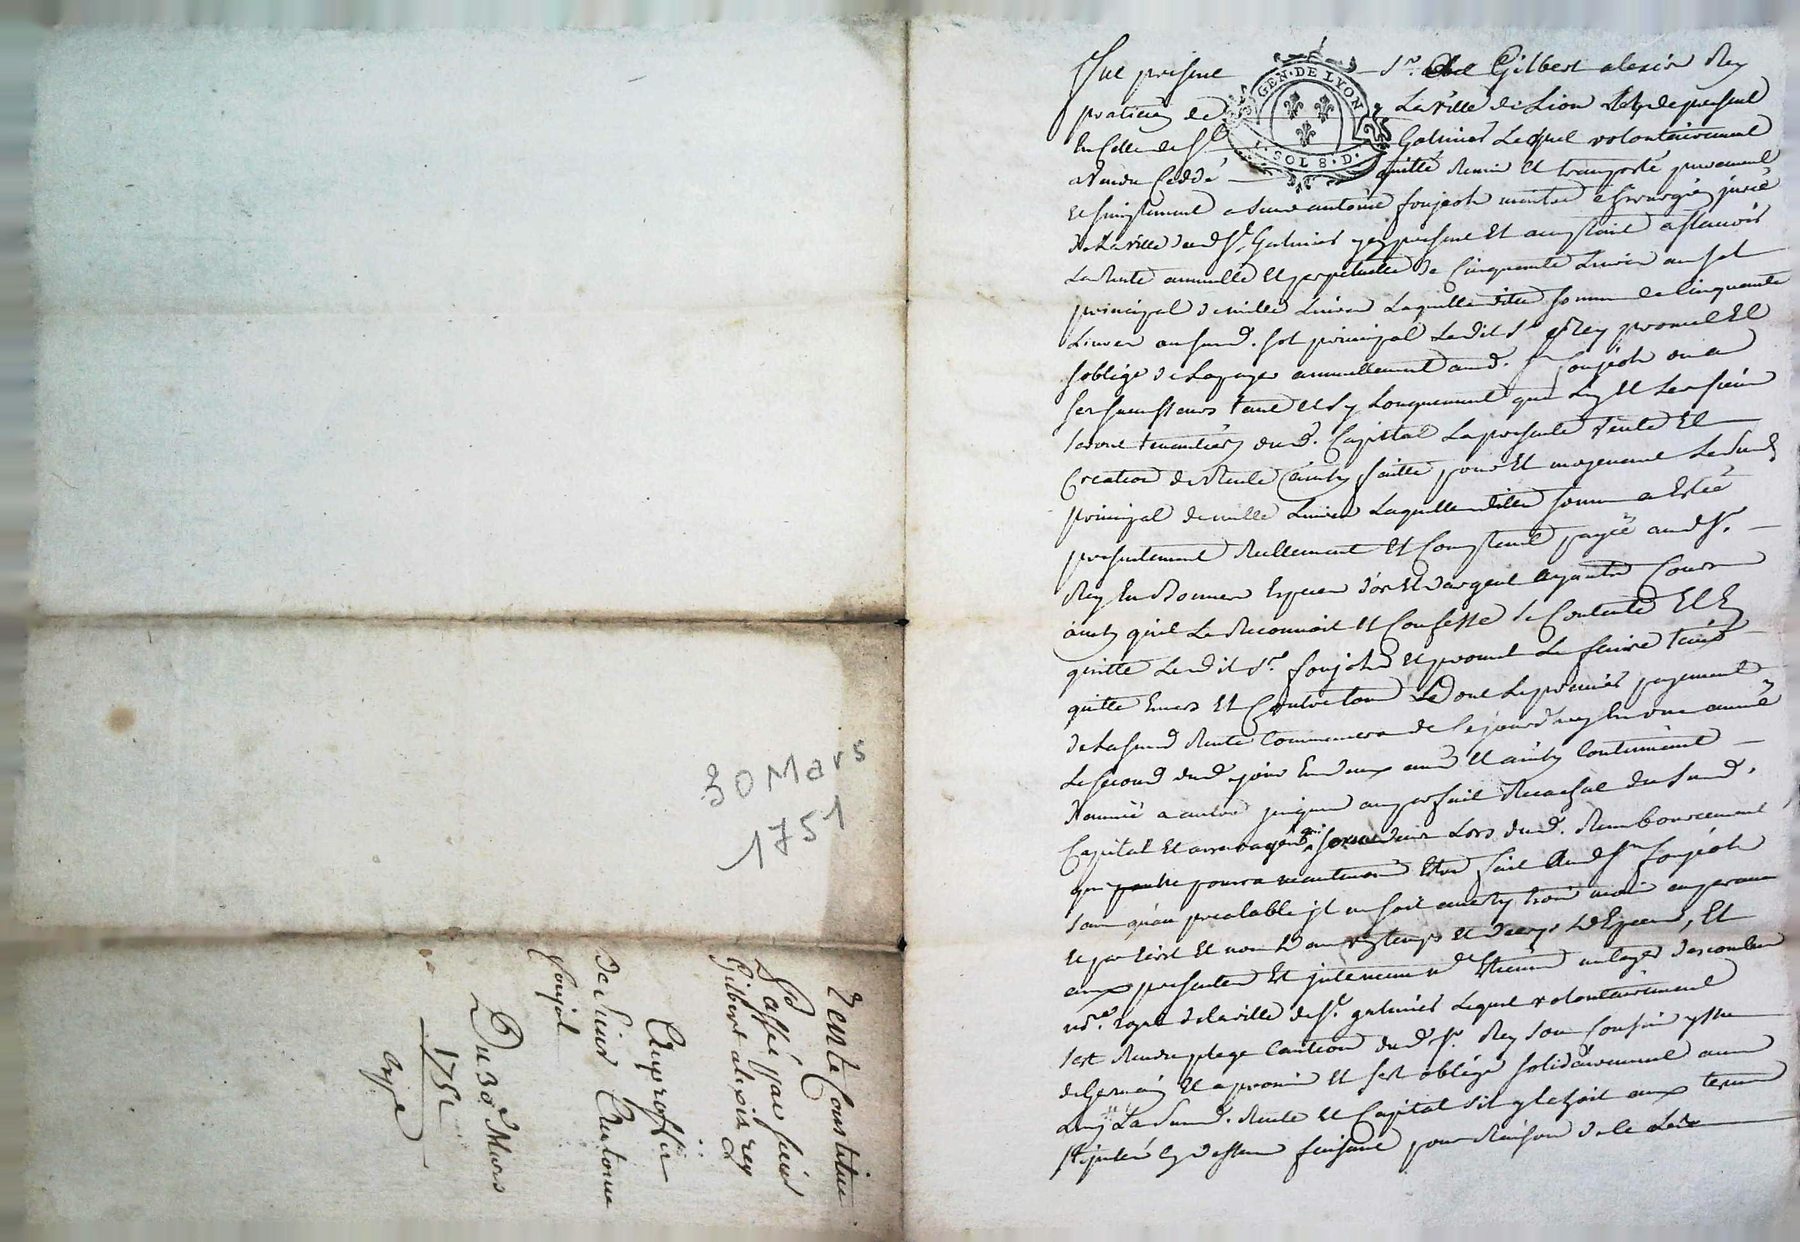 30 Mars
1751
Rente Constitue
Passé par sieur
Gilbert alexis rey
Au proffit
de Sieur Antoine
foujol
Du 30e Mars
1751
GEN. DE LYON
1. SOL 8. D.
Fut présent Sr. Gilbert alexis Rey
praticien de La ville de Lion de present
En Celle de St Galmier Lequel volontairement
a Vendu Ceddé quitté Remis Et transporté purement
Et simplement a Sieur antoine foujoh maitre Chirurgien juré
de La ville dud St. Galmier present Et acceptant assavoir
La Rente annuelle Et perpetuelle de Cinquante Livres au sol
principal de mille Livres Laquelle ditte somme de Cinquante
Livres ausud. sol principal Ledit Sr Rey promet Et
soblige de La payer annuellement aud. Sr foujoh ou a
ses successeurs tant Et sy Longuement que Luy Et Les siens
seront du d. Capital La presente Vente Et
Creation de Rente faitte pour Et moyenant Lesud
principal de mille Livres Laquelle ditte somme a Esté
presentement Reellement Et Comptant payée aud Sr.
Rey En Bonnes Especes d'or Et d'argent ayants Cours
ainsy qu'il Le Reconnoit Et Confesse Contente Et En
quitte Ledit Sr. foujoh Et promet Le faire tenir
quitte Envers Et Contre tous dont Le premier payement
de La sud Rente Commencera de Ce jourdhuy En une année
Le second dud jour En deux ans Et ainsy Continuer
d'année a autre jusques au parfait Rachat du Sud.
Capital Et arrerages Lors dud. Remboursement
qui pourra Etre fait aud Sr foujoh
sans qu'au prealable il en soit averty trois mois auparavant
Et par Ecrit Et non En Especes, Et
aux presentes Est intervenu Me Etienne
nore. royal de la ville de St. galmier Lequel volontairement
s'est Rendu plege Caution dud Sr Rey son Cousin
de Germain Et a promis Et s'est obligé solidairement avec
Luy La Sud. Rente Et Capital aux termes
stipulés Cy dessus faisant pour Raison de Ce